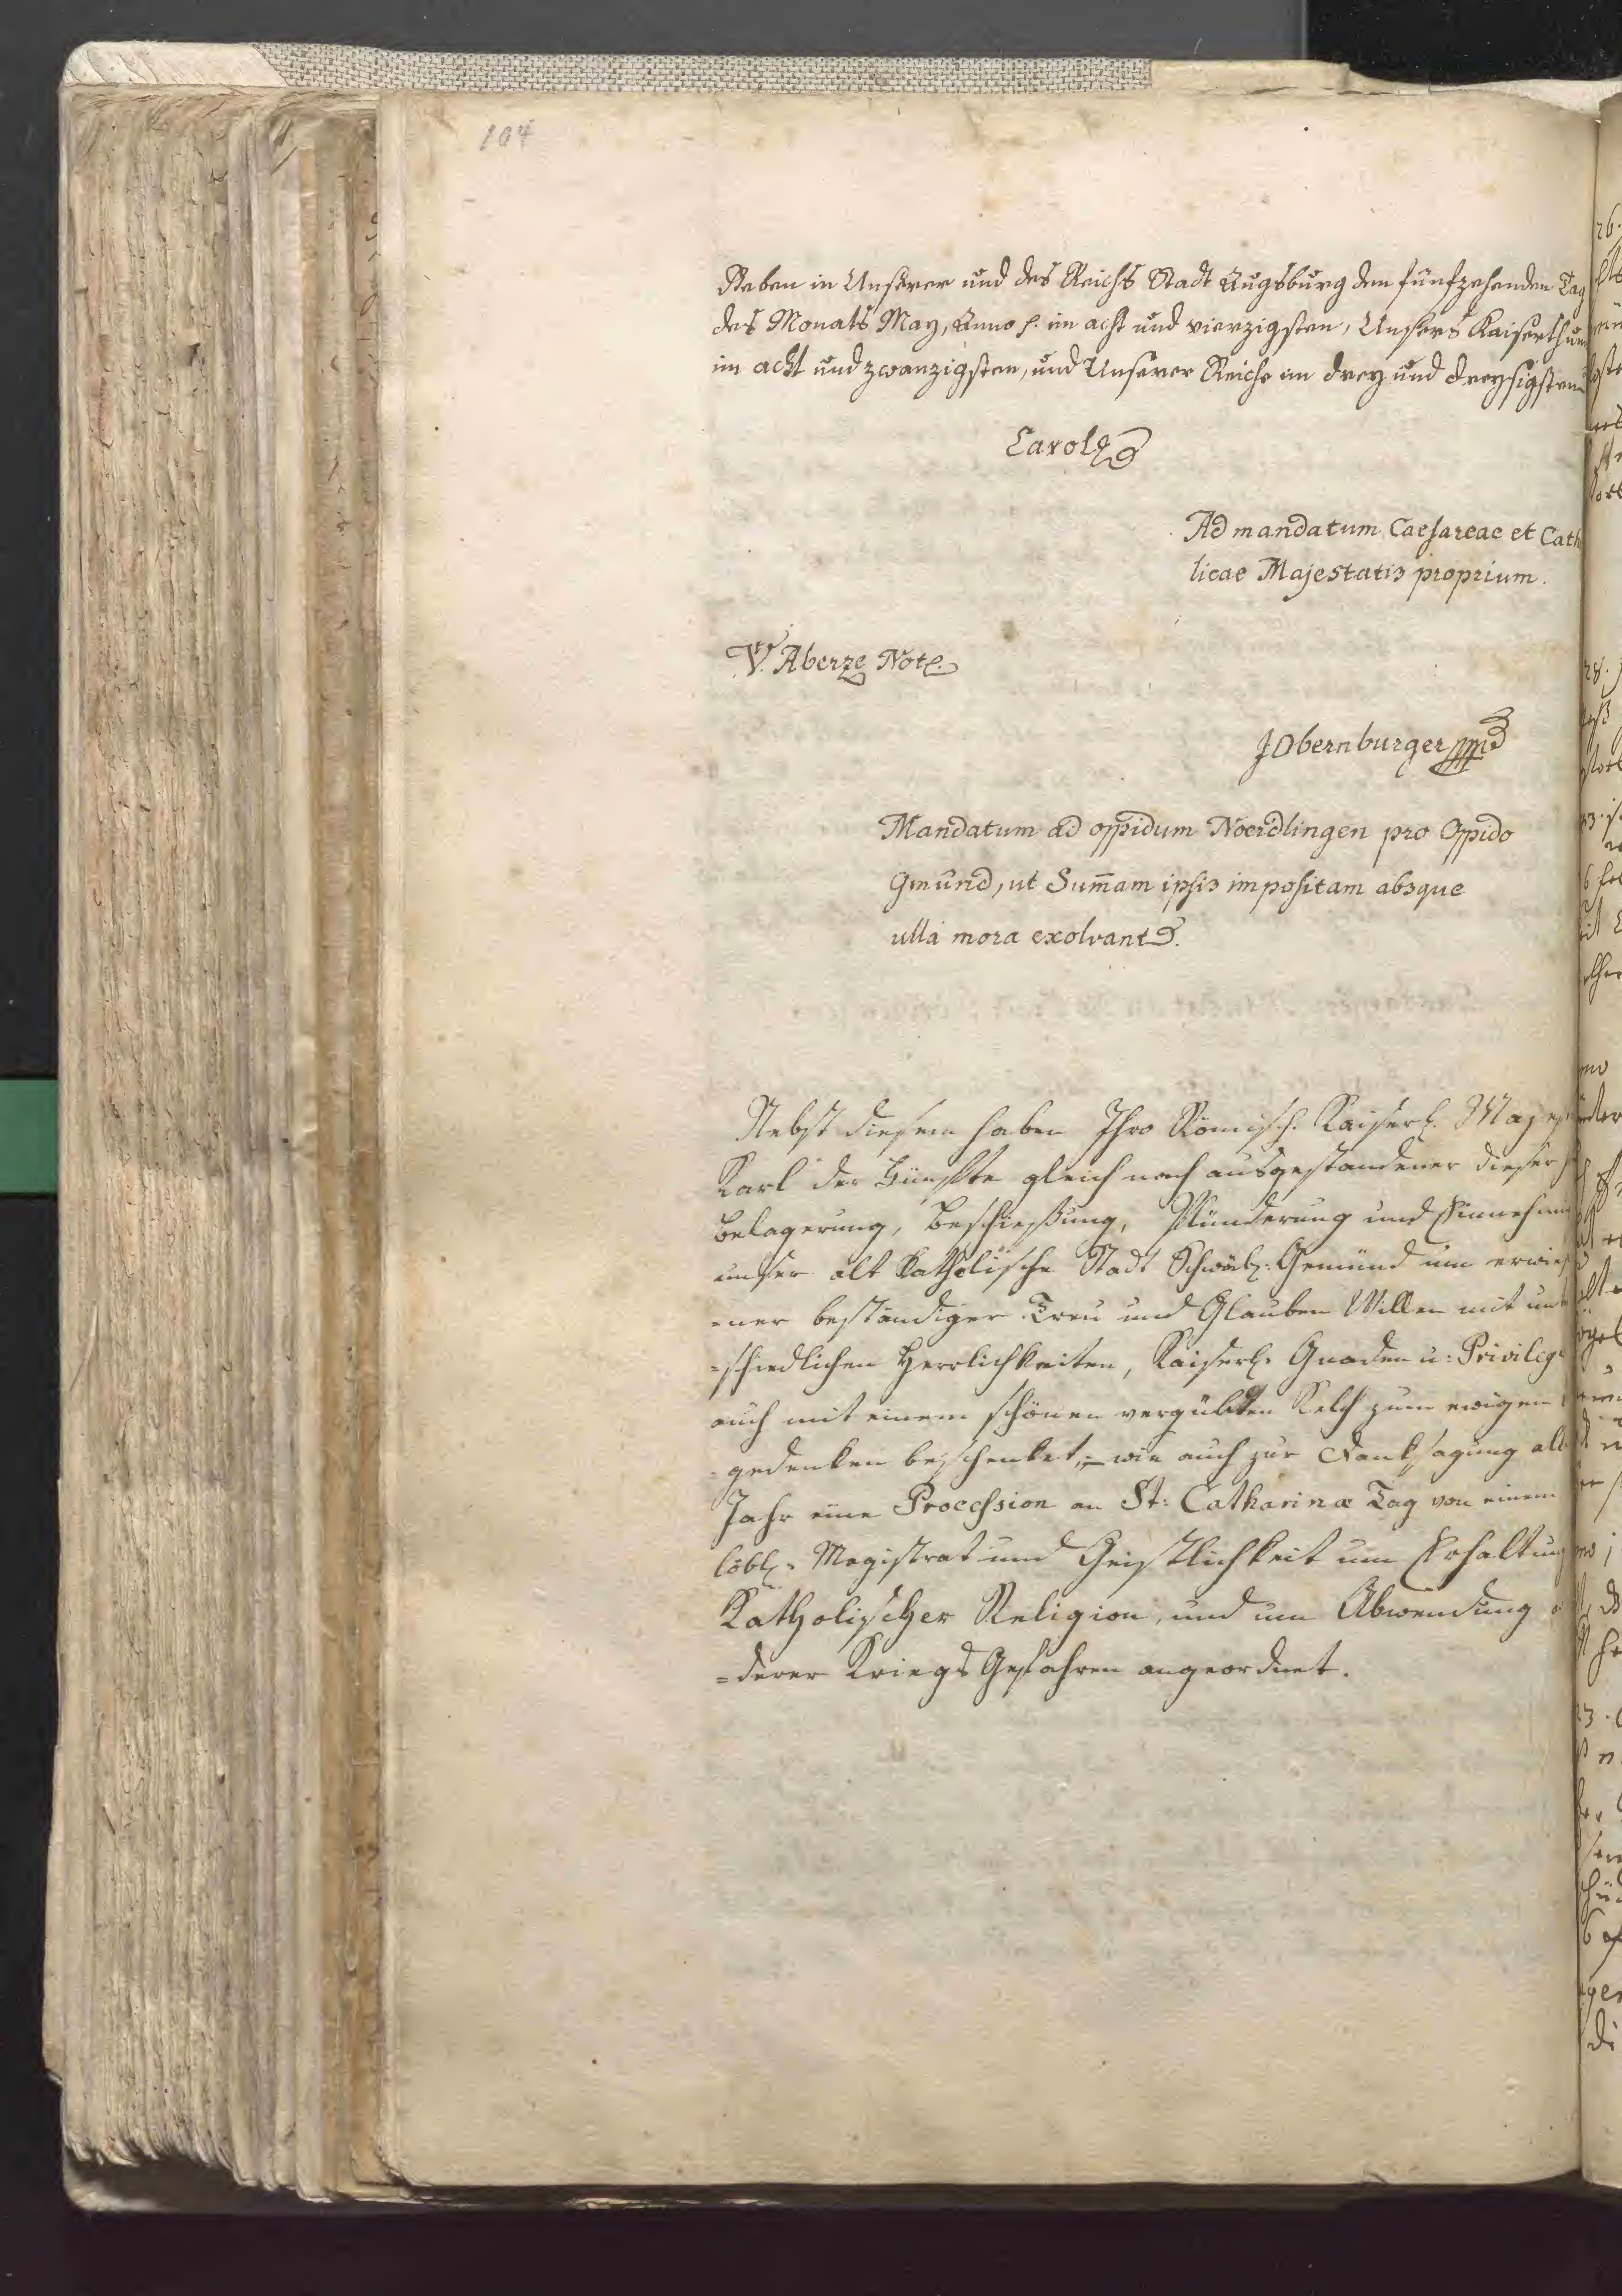 104
Geben in Unserer und des Reichs Stadt Augsburg den fünfzehenden Tag
des Monats May, Anno p. im acht und vierzigsten, Unsers Kaiserthum
im acht und zwanzigsten, und Unserer Reiche im drey und dreysigsten
Carol
Ad mandatum Caesareae et Cath
licae Majestatis proprium.
V. Aberze Not.
J Obernburger
Mandatum ad oppidum Noerdlingen pro Oppido
Gmünd, ut Sum̄am ipsis impositam absque
ulla mora exolvant.
Nebst diesem haben Ihro Römisch. Kaiserl. Majest
Karl der Fünfte gleich nach ausgestandener dieser
Belagerung, Beschießung, Plünderung und Einnehm
unser alt Katholische Stadt Schwäb. Gemünd um erwies
=ner beständiger Treu und Glauben Willen mit unt
=schiedlichen Herrlichkeiten, Kaiserl. Gnaden u: Privileg
auch mit einem schönen vergülten Kelch zum ewigen
=gedenken beschenket, – wie auch zur Danksagung all
Jahr eine Procession an St: Catharinæ Tag von einem
löbl. Magistrat und Geistlichkeit um Erhaltung
Katholischer Religion, und um Abwendung
=derer Kriegs Gefahren angeordnet.